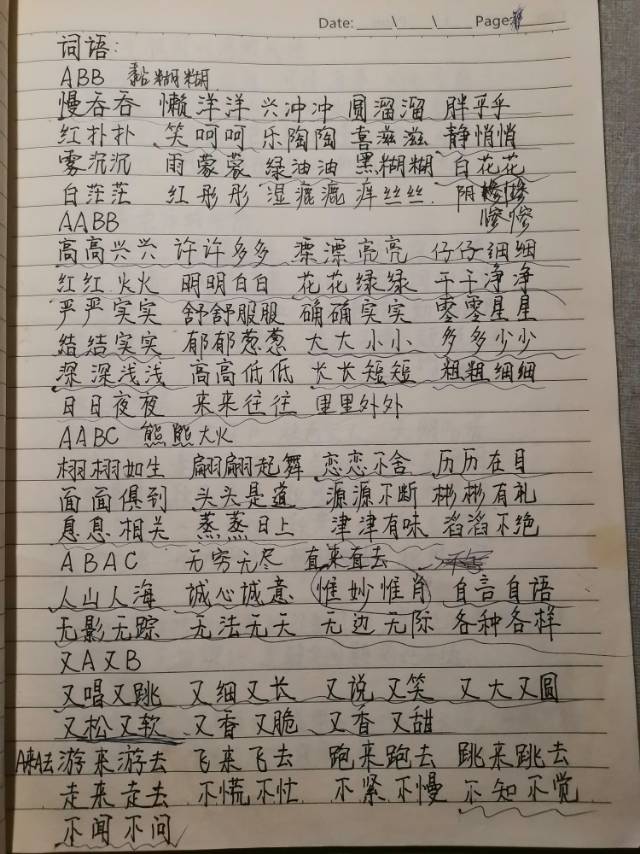 Date: \ \ Page:
词语:
ABB 黏糊糊
慢吞吞 懒洋洋 兴冲冲 圆溜溜 胖乎乎
红扑扑 笑呵呵 乐陶陶 喜滋滋 静悄悄
雾沉沉 雨蒙蒙 绿油油 黑糊糊 白花花
白茫茫 红彤彤 湿漉漉 痒丝丝 阴惨惨
AABB
高高兴兴 许许多多 漂漂亮亮 仔仔细细
红红火火 明明白白 花花绿绿 干干净净
严严实实 舒舒服服 确确实实 零零星星
结结实实 郁郁葱葱 大大小小 多多少少
深深浅浅 高高低低 长长短短 粗粗细细
日日夜夜 来来往往 里里外外
AABC 熊熊大火
栩栩如生 翩翩起舞 恋恋不舍 历历在目
面面俱到 头头是道 源源不断 彬彬有礼
息息相关 蒸蒸日上 津津有味 滔滔不绝
ABAC 无穷无尽 直来直去
人山人海 诚心诚意 惟妙惟肖 自言自语
无影无踪 无法无天 无边无际 各种各样
又A又B
又唱又跳 又细又长 又说又笑 又大又圆
又松又软 又香又脆 又香又甜
A来A去 游来游去 飞来飞去 跑来跑去 跳来跳去
走来走去 不慌不忙 不紧不慢 不知不觉
不闻不问